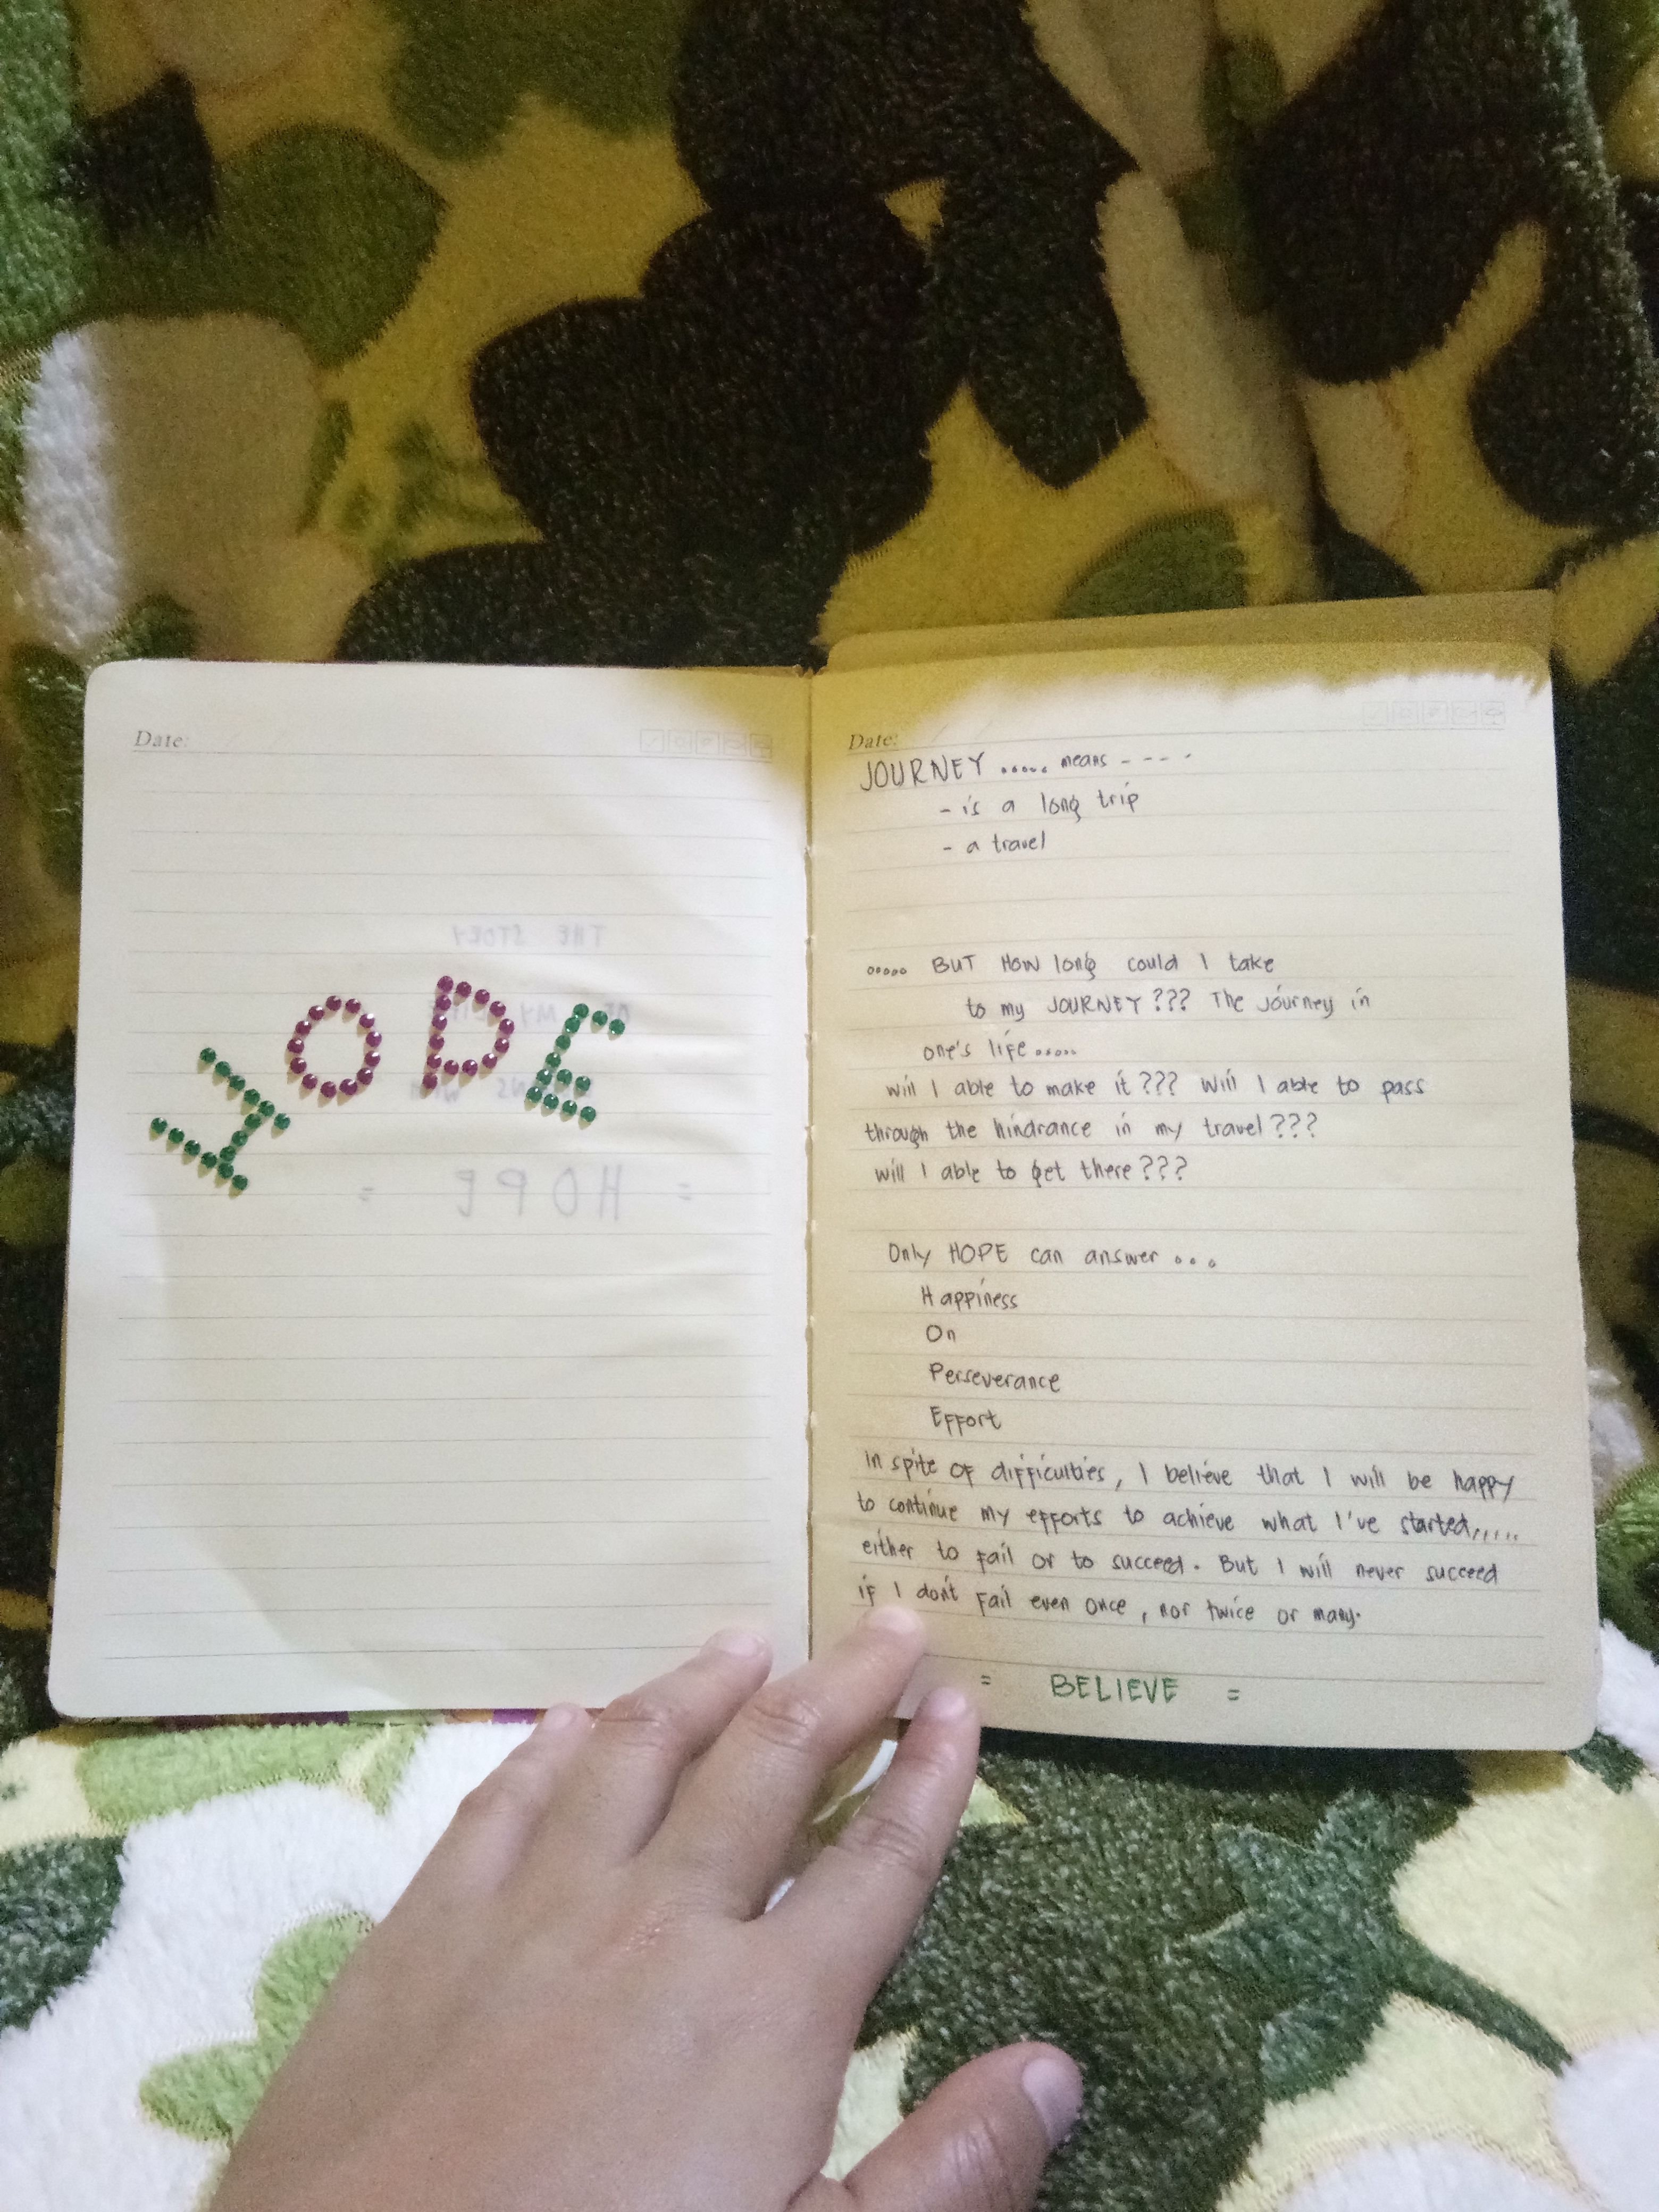 Date:
HOPE
THE STORY
OF MY LIFE
HOPE
Date:
JOURNEY ..... means - - - -
- is a long trip
- a travel
..... BUT HOW long could I take
to my JOURNEY ??? The Journey in
one's life .....
will I able to make it ??? Will I able to pass
through the hindrance in my travel ???
will I able to get there ???
Only HOPE can answer . . .
Happiness
On
Perseverance
Effort
In spite of difficulties, I believe that I will be happy
to continue my efforts to achieve what I've started,,,,,
either to fail or to succeed. But I will never succeed
if I don't fail even once, nor twice or many.
= BELIEVE =